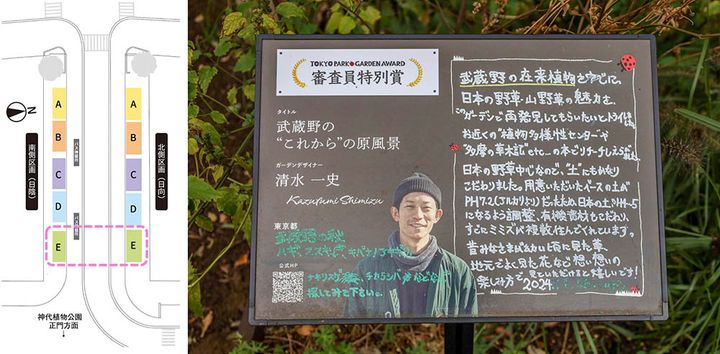 A
B
C
D
E
A
B
C
D
E
N
南側区画(日陰)
北側区画(日向)
神代植物公園
正門方面
TOKYO PARK GARDEN AWARD
審査員特別賞
タイトル
武蔵野の
“これから”の原風景
ガーデンデザイナー
清水 一史
Kazufumi Shimizu
東京都
武蔵野の秋
ハギ、ススキ
公式HP
探してみて下さい。
武蔵野の在来植物を中心に、
日本の野草・山野草の魅力を、
このガーデンで再発見してもらいたいとトライ
お近くの“植物多様性センター”や
“多摩の草木記”etc...の本でリサーチし
日本の野草中心なので、“土”にもかなり
こだわりました。用意いただいたベースの土が
PH7.2(アルカリより)だったため、日本の土
になるよう調整。有機資材もこだわり、
すぐにミミズが複数住んでくれています。
昔みなさまが幼い頃に見た草、
地元でよく見た花など想い想いの
楽しみ方で見ていただけると嬉しいです!
2024